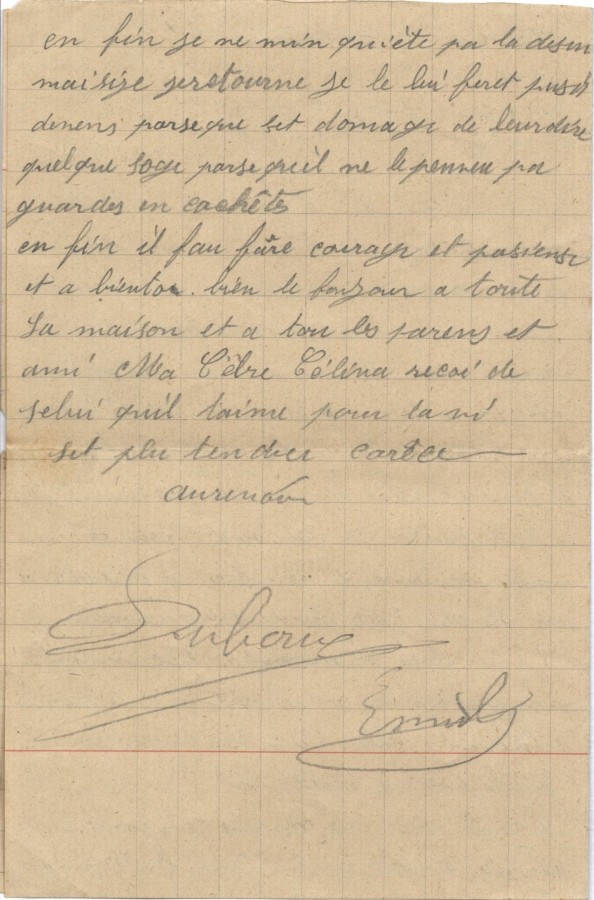 en fin je ne min quiéte pa la desu
mai size jeretourne je le lui feret
denens parseque set domage de leur dire
quelque soge parsequil ne le peuveu pa
guardes en cachêts
en fin il fau fâre courage et pasiense
et a biento. bien le bonjour a toute
la maison et a tou les parens et
ami Ma Cêbre Célina recoi de
selui quil taime pour la vi
set plu tendres carece
aurevoir
Emile